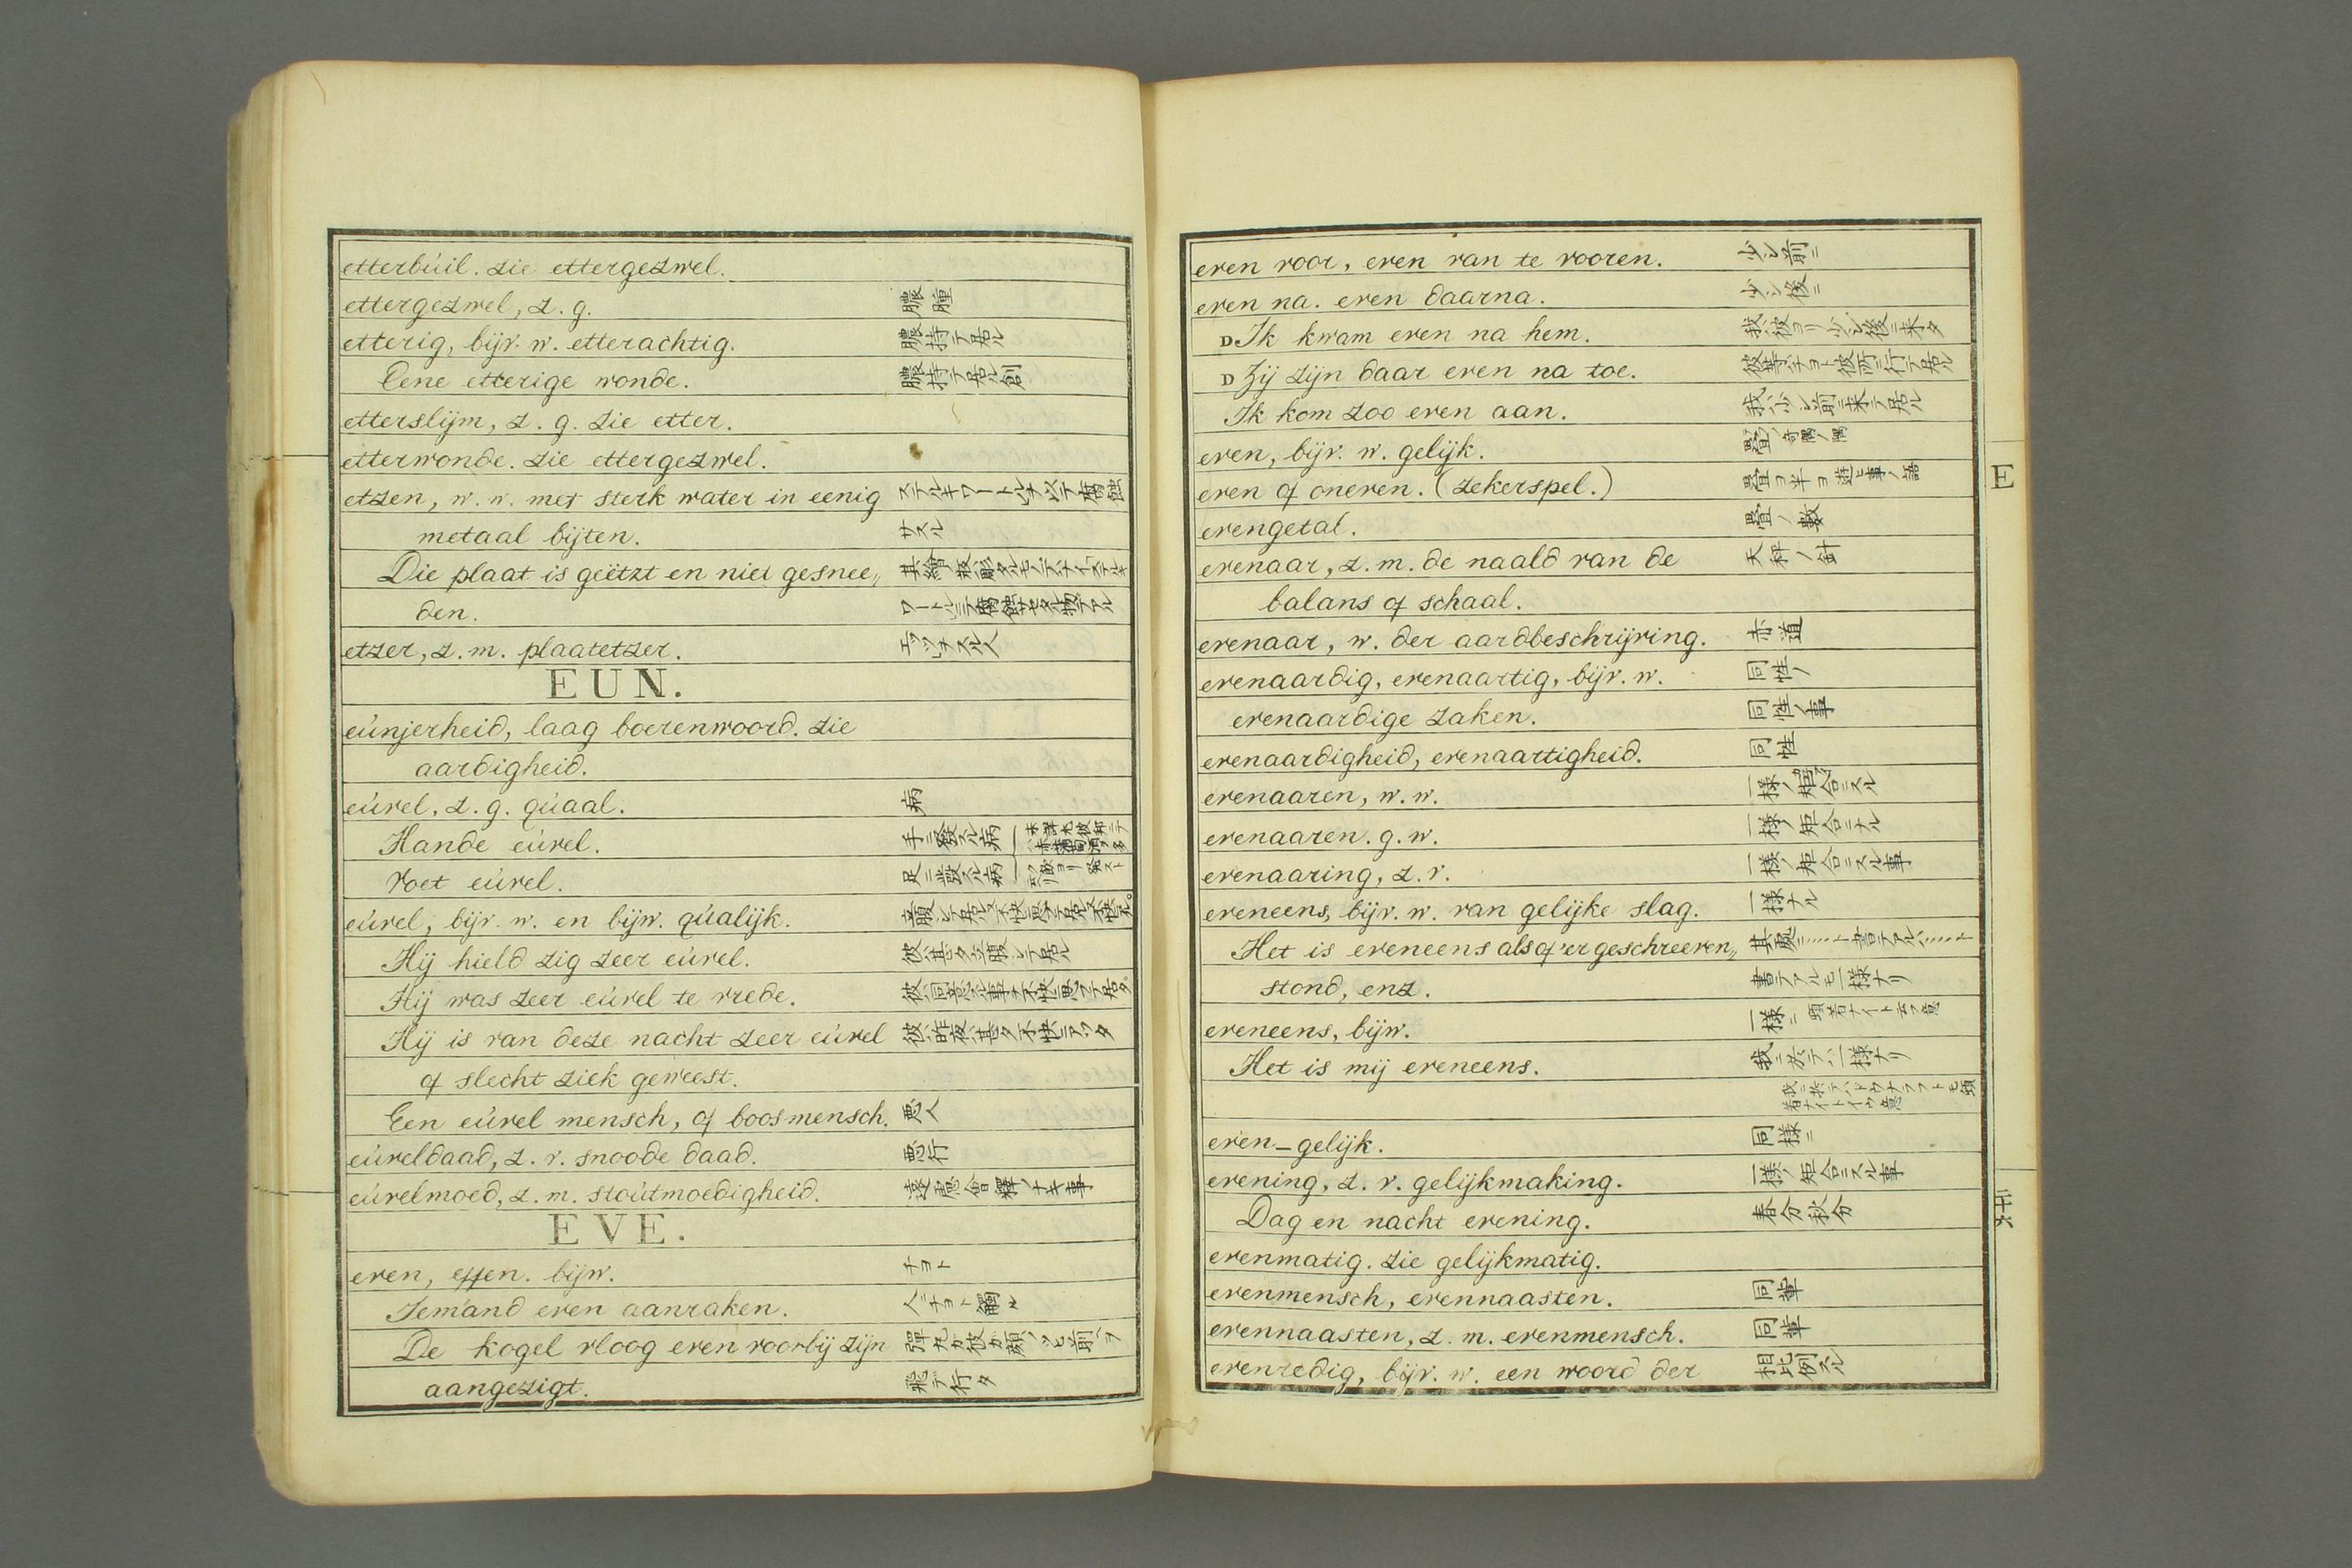 etterbúil. zie ettergezwel.
ettergezwel, z. g. 膿腫
etterig, bijv. w. etterachtig. 膿持テ居ル
Eene etterige wonde. 膿持テ居ル創
etterslijm, z. g. zie etter.
etterwonde. zie ettergezwel.
etzen, w. w. met sterk water in eenig
metaal bijten. サスル
Die plaat is geëtzt en niet gesnee„
den.
etzer, z. m. plaatetzer. エッツスル人
EUN.
eúnjerheid, laag boerenwoord. zie
aardigheid.
eúvel, z. g. qúaal. 病
Hande eúvel. 手ニ發スル病
Voet eúvel. 足ニ發スル病
eúvel, bijv. w. en bijw. qúalijk.
Hij hield zig zeer eúvel. 彼ハ甚タ立腹シテ居ル
Hij was zeer eúvel te vrede.
Hij is van deze nacht zeer eúvel 彼ハ昨夜甚タ不快テアッタ
of slecht ziek geweest.
Een eúvel mensch, of boosmensch. 悪人
eúveldaad, z. v. snoode daad. 悪行
eúvelmoed, z. m. stoútmoedigheid. 遠慮會釋ノナキ事
EVE.
even, effen. bijw. チョト
Iemand even aanraken. 人ニチョト觸ル
De kogel vloog even voorbij zijn
aangezigt. 飛テ行タ
even voor, even van te vooren. 少シ前ニ
even na. even daarna. 少シ後ニ
D Ik kwam even na hem. 我彼ヨリ少シ後ニ来タ
D Zij zijn daar even na toe. 彼等ハチョト彼所ニ行テ居ル
Ik kom zoo even aan. 我少シ前ニ来テ居ル
even, bijv. w. gelijk.
even of oneven. (zekerspel.)
evengetal. 疊ノ數
evenaar, z. m. de naald van de 天秤ノ針
balans of schaal.
evenaar, w. der aardbeschrijving. 赤道
evenaardig, evenaartig, bijv. w. 同性ノ
evenaardige zaken. 同性ノ事
evenaardigheid, evenaartigheid. 同性
evenaaren, w. w. 一様ノ矩合ニスル
evenaaren. g. w. 一様ノ矩合ニナル
evenaaring, z. v. 一様ノ矩合ニスル事
eveneens, bijv. w. van gelijke slag. 一様ナル
Het is eveneens als of 'er geschreeven„
stond, enz. 書テアルモ一様ナリ
eveneens, bijw. 一様ニ 頓着ナイト云フ意
Het is mij eveneens. 我ニ於テハ一様ナリ
even-gelijk. 同様ニ
evening, z. v. gelijkmaking. 一様ノ矩合ニスル事
Dag en nacht evening. 春分秋分
evenmatig. zie gelijkmatig.
evenmensch, evennaasten. 同輩
evennaasten, z. m. evenmensch. 同輩
evenredig, bijv. w. een woord der 相比例スル
E